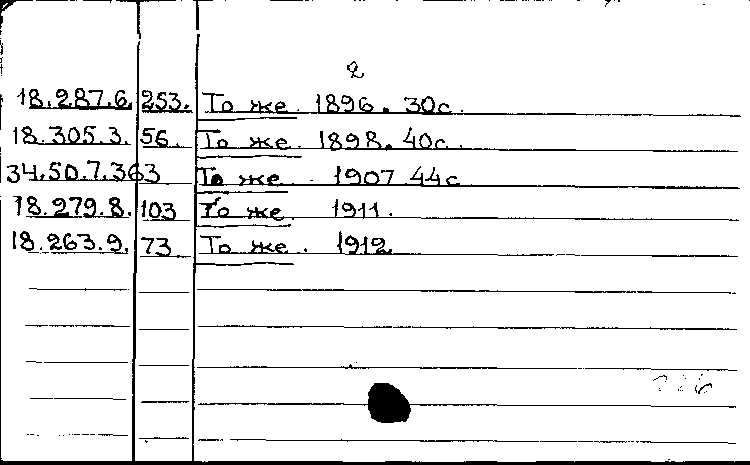 2
18.287.6. 253. То же. 1896. 30с.
18.305.3. 56. То же. 1898. 40с.
34.50.7.363 То же. 1907 44с
18.279.8. 103 То же. 1911.
18.263.9. 73 То же. 1912